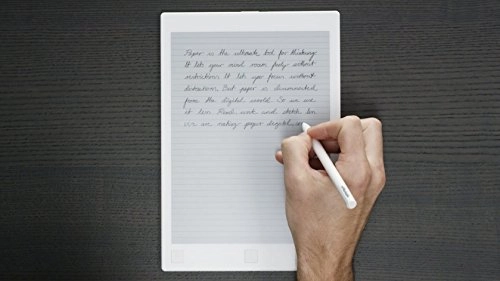 Paper is the ultimate tool for thinking.
It lets your mind roam freely without
instructions. It lets you focus without
distractions. But paper is disconnected
from the digital world. So we use
it less. Read, write and sketch
we are making paper digital